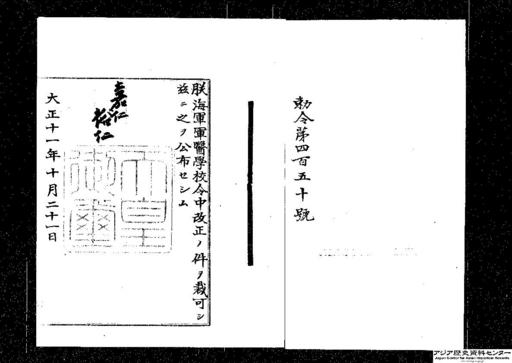 勅令第四百五十號
朕海軍軍醫學校令中改正ノ件ヲ裁可シ
茲ニ之ヲ公布セシム
嘉仁
裕仁
天皇
御璽
大正十一年十月二十一日
アジア歴史資料センター
Japan Center for Asian Historical Records